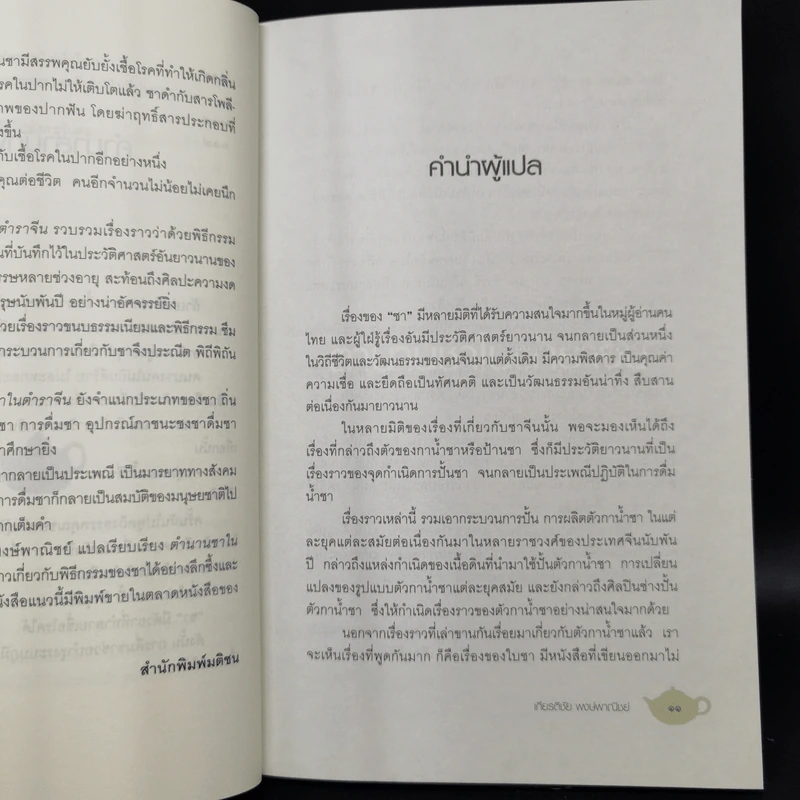 นชามีสรรพคุณยับยั้งเชื้อโรคที่ทำให้เกิดกลิ่น
รคในปากไม่ให้เติบโตแล้ว ชาดำกับสารโพลี-
าพของปากฟัน โดยฆ่าฤทธิ์สารประกอบที่
งขึ้น
กับเชื้อโรคในปากอีกอย่างหนึ่ง
คุณต่อชีวิต คนอีกจำนวนไม่น้อยไม่เคยนึก
ตำราจีน รวบรวมเรื่องราวว่าด้วยพิธีกรรม
นที่บันทึกไว้ในประวัติศาสตร์อันยาวนานของ
รรษหลายช่วงอายุ สะท้อนถึงศิลปะความงด
รุษนับพันปี อย่างน่าอัศจรรย์ยิ่ง
้วยเรื่องราวขนบธรรมเนียมและพิธีกรรม ซึม
กระบวนการเกี่ยวกับชาจึงประณีต พิถีพิถัน
าในตำราจีน ยังจำแนกประเภทของชา ถิ่น
ชา การดื่มชา อุปกรณ์ภาชนะชงชาดื่มชา
าศึกษายิ่ง
ากลายเป็นประเพณี เป็นมารยาททางสังคม
การดื่มชาก็กลายเป็นสมบัติของมนุษยชาติไป
ากเต็มคำ
งษ์พาณิชย์ แปลเรียบเรียง ตำนานชาใน
าวเกี่ยวกับพิธีกรรมของชาได้อย่างลึกซึ้งและ
นังสือแนวนี้มีพิมพ์ขายในตลาดหนังสือของ
สำนักพิมพ์มติชน
คำนำผู้แปล
เรื่องของ “ชา” มีหลายมิติที่ได้รับความสนใจมากขึ้นในหมู่ผู้อ่านคน
ไทย และผู้ใฝ่รู้เรื่องอันมีประวัติศาสตร์ยาวนาน จนกลายเป็นส่วนหนึ่ง
ในวิถีชีวิตและวัฒนธรรมของคนจีนมาแต่ดั้งเดิม มีความพิสดาร เป็นคุณค่า
ความเชื่อ และยึดถือเป็นทัศนคติ และเป็นวัฒนธรรมอันน่าทึ่ง สืบสาน
ต่อเนื่องกันมายาวนาน
ในหลายมิติของเรื่องที่เกี่ยวกับชาจีนนั้น พอจะมองเห็นได้ถึง
เรื่องที่กล่าวถึงตัวของกาน้ำชาหรือป้านชา ซึ่งก็มีประวัติยาวนานที่เป็น
เรื่องราวของจุดกำเนิดการปั้นชา จนกลายเป็นประเพณีปฏิบัติในการดื่ม
น้ำชา
เรื่องราวเหล่านี้ รวมเอากระบวนการปั้น การผลิตตัวกาน้ำชา ในแต่
ละยุคแต่ละสมัยต่อเนื่องกันมาในหลายราชวงศ์ของประเทศจีนนับพัน
ปี กล่าวถึงแหล่งกำเนิดของเนื้อดินที่นำมาใช้ปั้นตัวกาน้ำชา การเปลี่ยน
แปลงของรูปแบบตัวกาน้ำชาแต่ละยุคสมัย และยังกล่าวถึงศิลปินช่างปั้น
ตัวกาน้ำชา ซึ่งให้กำเนิดเรื่องราวของตัวกาน้ำชาอย่างน่าสนใจมากด้วย
นอกจากเรื่องราวที่เล่าขานกันเรื่อยมาเกี่ยวกับตัวกาน้ำชาแล้ว เรา
จะเห็นเรื่องที่พูดกันมาก ก็คือเรื่องของใบชา มีหนังสือที่เขียนออกมาไม่
เกียรติชัย พงษ์พาณิชย์ ๑๑